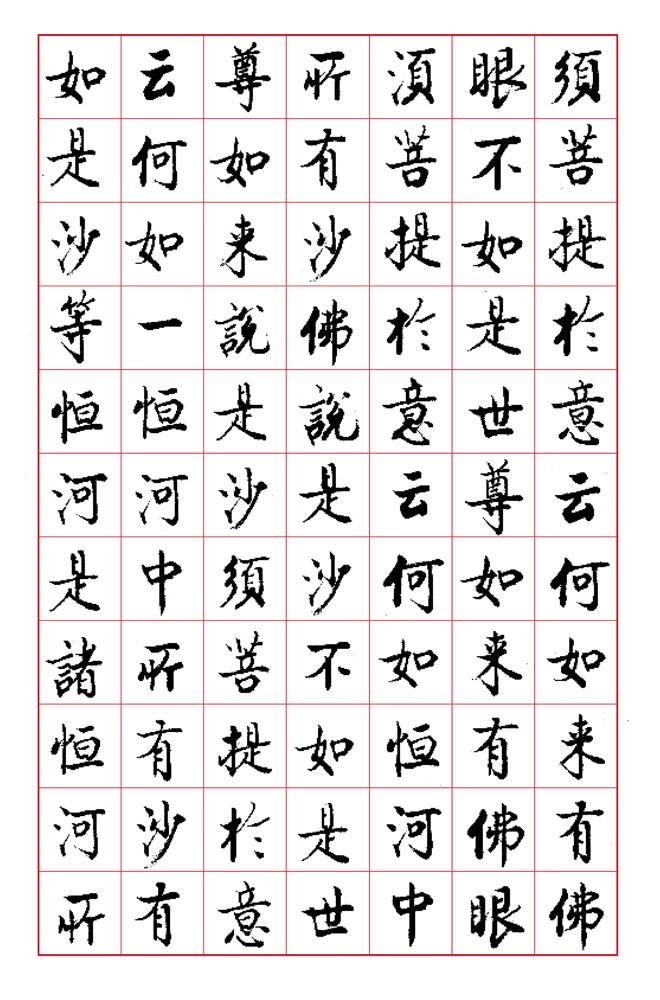 須菩提於意云何如来有佛
眼不如是世尊如来有佛眼
湏菩提於意云何如恒河中
所有沙佛說是沙不如是世
尊如来說是沙須菩提於意
云何如一恒河中所有沙有
如是沙等恒河是諸恒河所